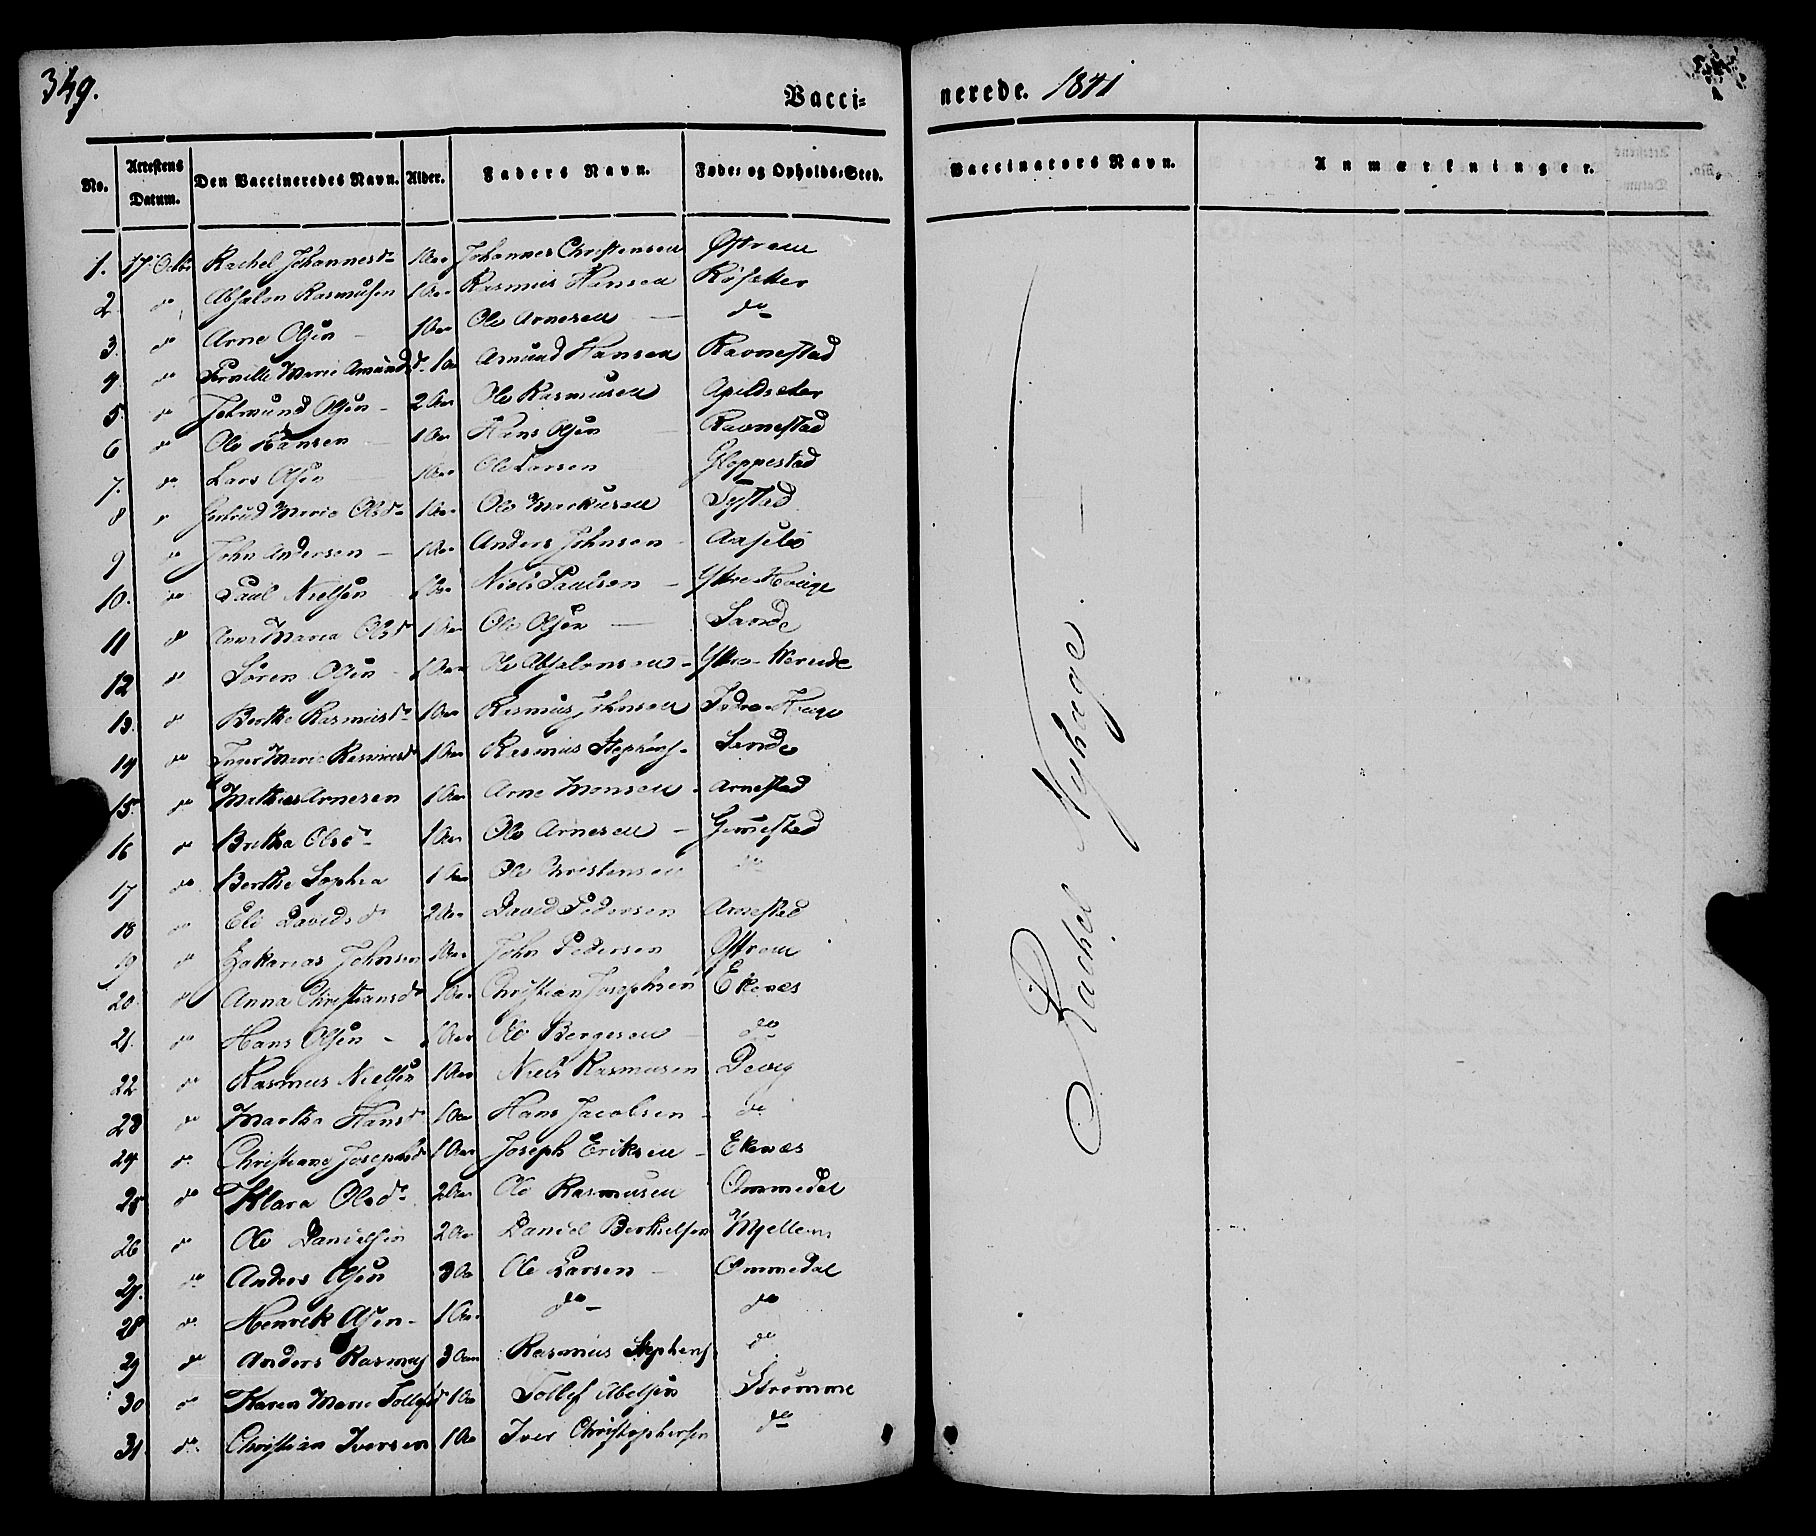 349.
Vacci- nerede. 1841
No. Attestens Datum. Den Vaccineredes Navn. Alder. Faders Navn. Føde- og Opholds-Sted. Vaccinators Navn. Anmærkninger.
1. 17 Octbr Rachel Johannesdr 1 Aar Johannes Christensen
2. do Absalon Rasmusen 1 Aar Rasmus Hansen Røsetter
3. do Arne Olsen - 1 Aar Ole Arnesen - do
4. do Pernille Marie Amundsdr 1 Aar Amund Hansen Ravnestad
5. do Olsen - 2 Aar Ole Rasmusen Apildsetter
6. do Ole Hansen 1 Aar Hans Olsen Ravnestad
7. do Lars Olsen 1 Aar Ole Larsen Gloppestad
8. do Gertrud Marie Olsdr 1 Aar Ole Markusen Tystad
9. do John Andersen - 1 Aar Anders Johnsen - Aaselie
10. do Paul Nielsen 1 Aar Niels Paulsen - Yttre Houge
11. do Anne Maria Olsdr 1 Aar Ole Olsen - Sande
12. do Søren Olsen - 1 Aar Ole Absalonsen - Yttre
13. do Berthe Rasmusdr 1 Aar Rasmus Johnsen Indre Houge
14. do Inger Marie Rasmusdr 1 Aar Rasmus Stephens - Sande
15. do Mathias Arnesen 1 Aar Arne Monsen - Arnestad
16. do Brithe Olsdr 1 Aar Ole Arnesen - Gimmestad
17. do Berthe Sophia 1 Aar Ole Christensen do
18. do Eli Davidsdr 2 Aar David Pedersen Arnestad
19. do Zakarias Johnsen 1 Aar John Pedersen
20. do Anna Christiansdr 1 Aar Christian Josephsen Ekenæs
21. do Hans Olsen - 1 Aar Ole Bergesen - do
22. do Rasmus Nielsen 1 Aar Niels Rasmusen Devig
23. do Martha Hansdr 1 Aar Hans Jacobsen - do
24. do Christiane Josephsdr 1 Aar Joseph Eriksen - Ekenæs
25. do Klara Olsdr 2 Aar Ole Rasmusen Ommedal
26. do Ole Danielsen 2 Aar Daniel Berthelsen Mjellem
27. do Anders Olsen 3 Aar Ole Larsen - Ommedal
28. do Henrik Olsen - 1 Aar do - do
29. do Anders Rasmus 3 Aar Rasmus Stephens do
30. do Karen Marie Tollefsdr 1 Aar Tollef Abelsen Strømme
31. do Christian Iversen 1 Aar Iver Christophersen do
Rachel Nyhage -